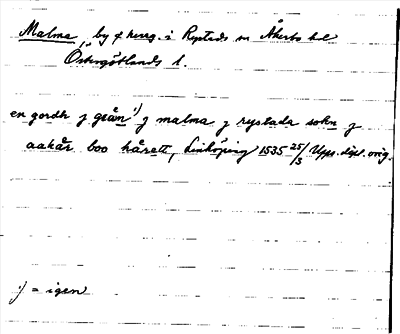 Malma, by o. herrg. i Rystads sn Åkerbo hd
Östergötlands l.
en gordh j geån ¹) j malma j rystadz sokn j
aakår boo hårett, Linköping 1535 25/3 Upps. dipl. orig.
¹) = igen